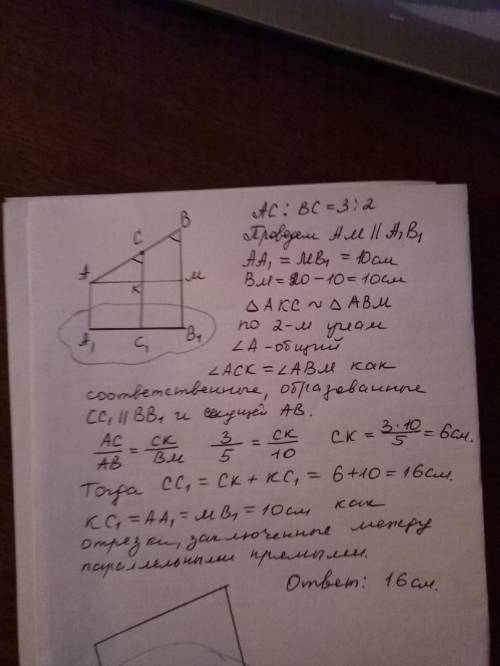 AC : BC = 3 : 2
Проведем AM || A₁B₁
AA₁ = MB₁ = 10см
BM = 20 - 10 = 10см
△AKC ~ △ABM
по 2-м углам
∠A - общий
∠ACK = ∠ABM как
соответственные, образованные
CC₁ || BB₁ и секущей AB.
AC/AB = CK/BM 3/5 = CK/10 CK = 3·10/5 = 6см.
Тогда CC₁ = CK + KC₁ = 6 + 10 = 16см.
KC₁ = AA₁ = MB₁ = 10см как
отрезки, заключенные между
параллельными прямыми.
Ответ: 16см.
B
C
A
K
M
A₁
C₁
B₁